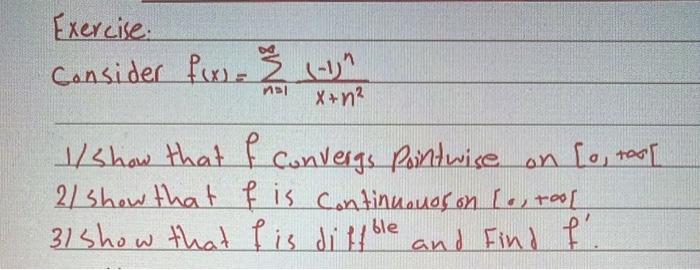 Exercise:
Consider f(x) = ∞ Σ n=1 (-1)^n / x+n²
1/ Show that f Convergs Pointwise on [0, +∞[
2/ Show that f is Continuouos on [0, +∞[
3/ Show that f is diff^ble and Find f'.